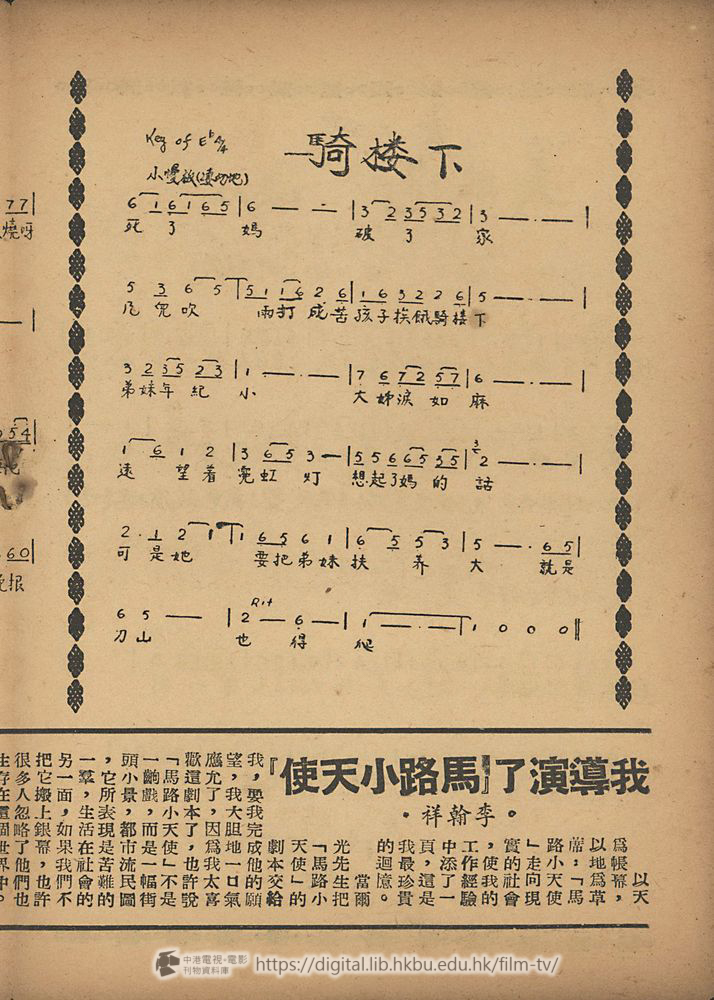 騎楼下
Key of E♭ 4/4
小慢板(凄切地)
6 1 6 1 6 5 | 6 — — — | 3 2 3 5 3 2 | 3 — — — |
死了 媽 破了 家
5 3 6 5 | 5 1 1 6 2 6 | 1 6 3 2 2 6 | 5 — — — |
風兒吹 雨打成苦孩子挨餓騎楼下
3 2 3 5 2 3 | 1 — — — | 7 6 7 2 5 7 | 6 — — — |
弟妹年紀小 大姊淚如麻
1 6 1 2 | 3 6 5 3 — | 5 5 6 6 5 3 5 | 2 — — — |
遠望着霓虹灯 想起了媽的話
2 · 1 2 1 | 1 6 5 6 1 | 6 5 5 3 | 5 — — 6 5 |
可是她 要把弟妹扶养大 就是
Rit
6 5 — | 2 — 6 — | 1 — — — | 1 0 0 0 ‖
刀山 也得爬
7 7 |
燒呀
5 4 |
6 6 0 |
我導演了『馬路小天使』
·李翰祥·
以天
爲帳幕,
以地爲草
蓆;「馬
路小天使
」走向現
實的社會
,使我的
工作經驗
中添了一
頁,這是
我最珍貴
的迴憶。
當爾
光先生把
「馬路小
天使」的
劇本交給
我,要我完成他的願
望,我大胆地一口氣
應允了,因爲我太喜
歡這劇本了,也許說
「馬路小天使」不是
一齣戲,而是一幅街
頭小景,都市流民圖
,它所表現是苦難的
一羣,生活在社會的
另一面,如果我們不
把它搬上銀幕,也許
很多人忽略了他們也
生存在這個世界中。
中港電視·電影
刊物資料庫
https://digital.lib.hkbu.edu.hk/film-tv/